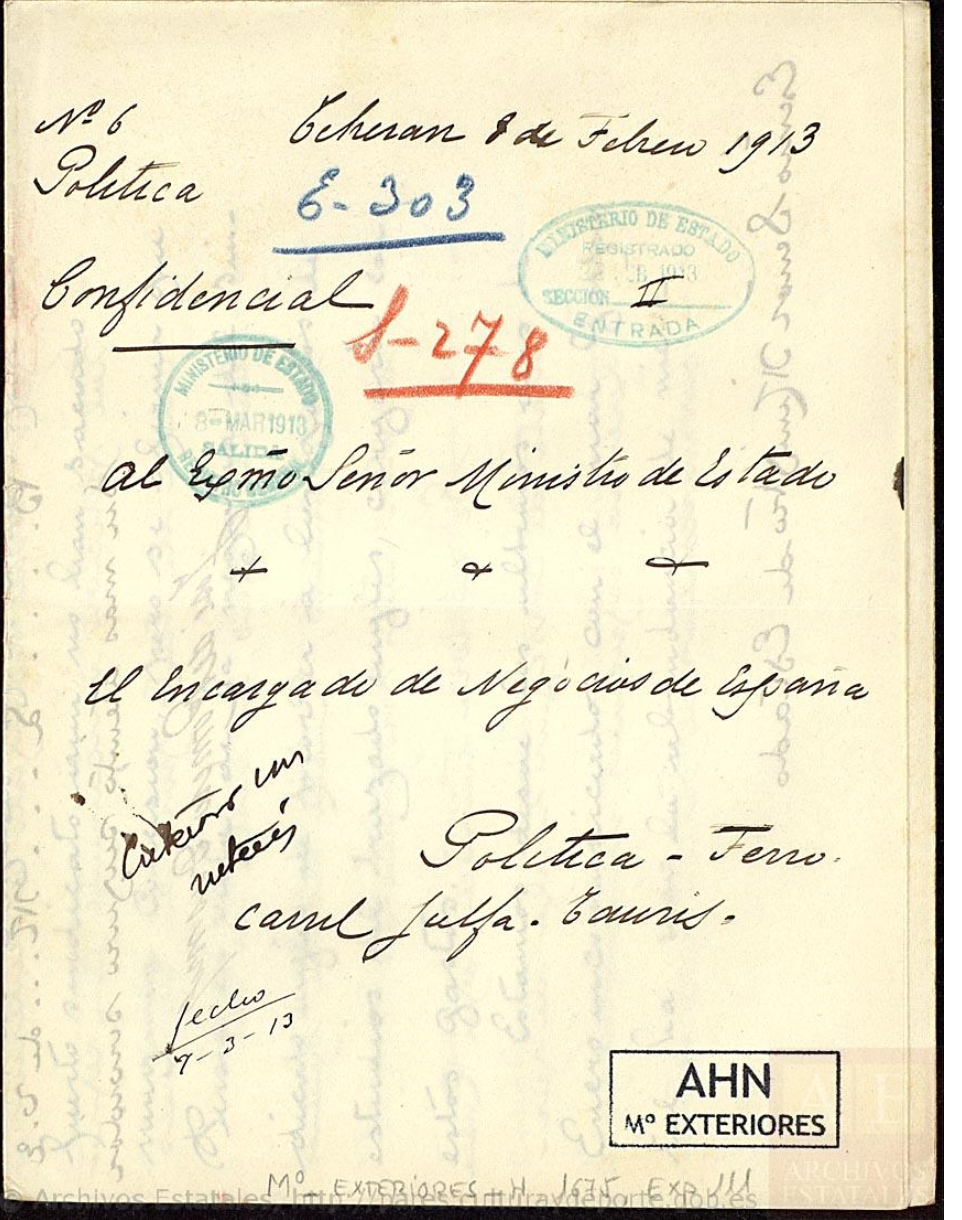 Nº 6 Teheran 8 de Febrero 1913
Politica
E-303
MINISTERIO DE ESTADO
REGISTRADO
FEB 1913
SECCION II
ENTRADA
Confidencial
S-278
MINISTERIO DE ESTADO
8-MAR 1913
SALIDA
Al Exmo Señor Ministro de Estado
El Encargado de Negocios de España
con
interés
Politica - Ferro-
carril Julfa-Tauris-
fecho
7-3-13
AHN
Mº EXTERIORES
Mº EXTERIORES H 1675, EXP 111
© Archivos Estatales, http://pares.culturaydeporte.gob.es
A E
ARCHIVOS
ESTATALES